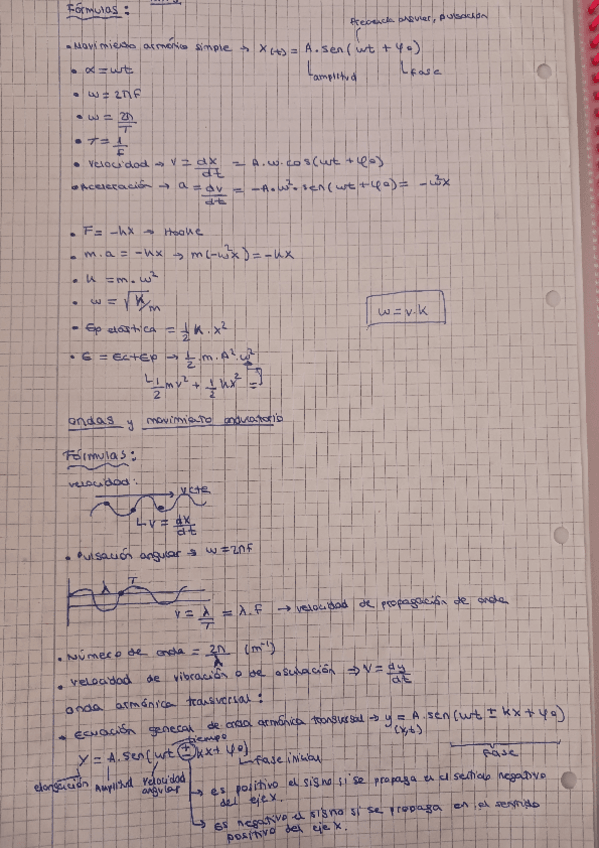 Fórmulas:
frecuencia angular, pulsación
• Movimiento armónico simple → x(t) = A.sen(wt + φ0)
amplitud
fase
• α = wt
• w = 2πf
• w = 2π/T
• T = 1/f
• Velocidad → v = dx/dt = A.w.cos(wt + φ0)
• Aceleración → a = dv/dt = -A.w².sen(wt + φ0) = -w²x
• F = -kx → Hooke
• m.a = -kx → m(-w²x) = -kx
• k = m.w²
• w = √k/m
w = v.k
• Ep elástica = 1/2 k.x²
• E = Ec + Ep → 1/2.m.A².w²
1/2 mv² + 1/2 kx² =
ondas y movimiento ondulatorio
Fórmulas:
velocidad:
v cte
v = dx/dt
• Pulsación angular → w = 2πf
λ T
v = λ/T = λ.f → velocidad de propagación de onda
• Número de onda = 2π/λ (m⁻¹)
• velocidad de vibración o de oscilación ⇒ v = dy/dt
onda armónica transversal:
• Ecuación general de onda armónica transversal → y(x,t) = A.sen(wt ± kx + φ0)
tiempo
fase
y = A.sen(wt ± kx + φ0)
fase inicial
elongación Amplitud velocidad angular
→ es positivo el signo si se propaga en el sentido negativo
del eje x.
→ es negativo el signo si se propaga en el sentido
positivo del eje x.